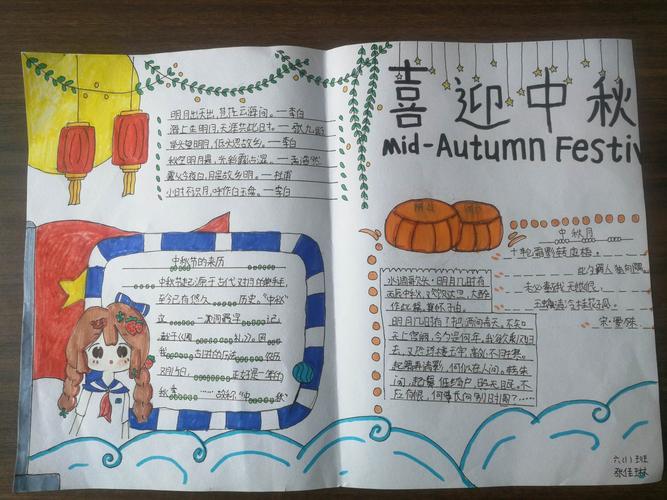 喜迎中秋
Mid-Autumn Festiv
明月出天山,苍茫云海间。—李白
海上生明月,天涯共此时。—张九龄
举头望明月,低头思故乡。—李白
秋空明月悬,光彩露沾湿。—孟浩然
露从今夜白,月是故乡明。—杜甫
小时不识月,呼作白玉盘。—李白
中秋节的来历
中秋节起源于古代对月的
至今已有悠久 历史。“中秋”
一词
我 古时的历法 农历
秋季 故称“中秋”
中秋月
十轮霜影转庭梧
此夕羁人独向隅
未必素娥无怅恨
玉蟾清冷桂花孤
宋·晏殊
水调歌头·明月几时有
明月几时有?把酒问青天。不知
天上宫阙,今夕是何年。我欲乘风归
去,又恐琼楼玉宇,高处不胜寒。
起舞弄清影,何似在人间。转朱
阁,低绮户,照无眠。不
应有恨,何事长向别时圆?……
六(1)班
张佳琳